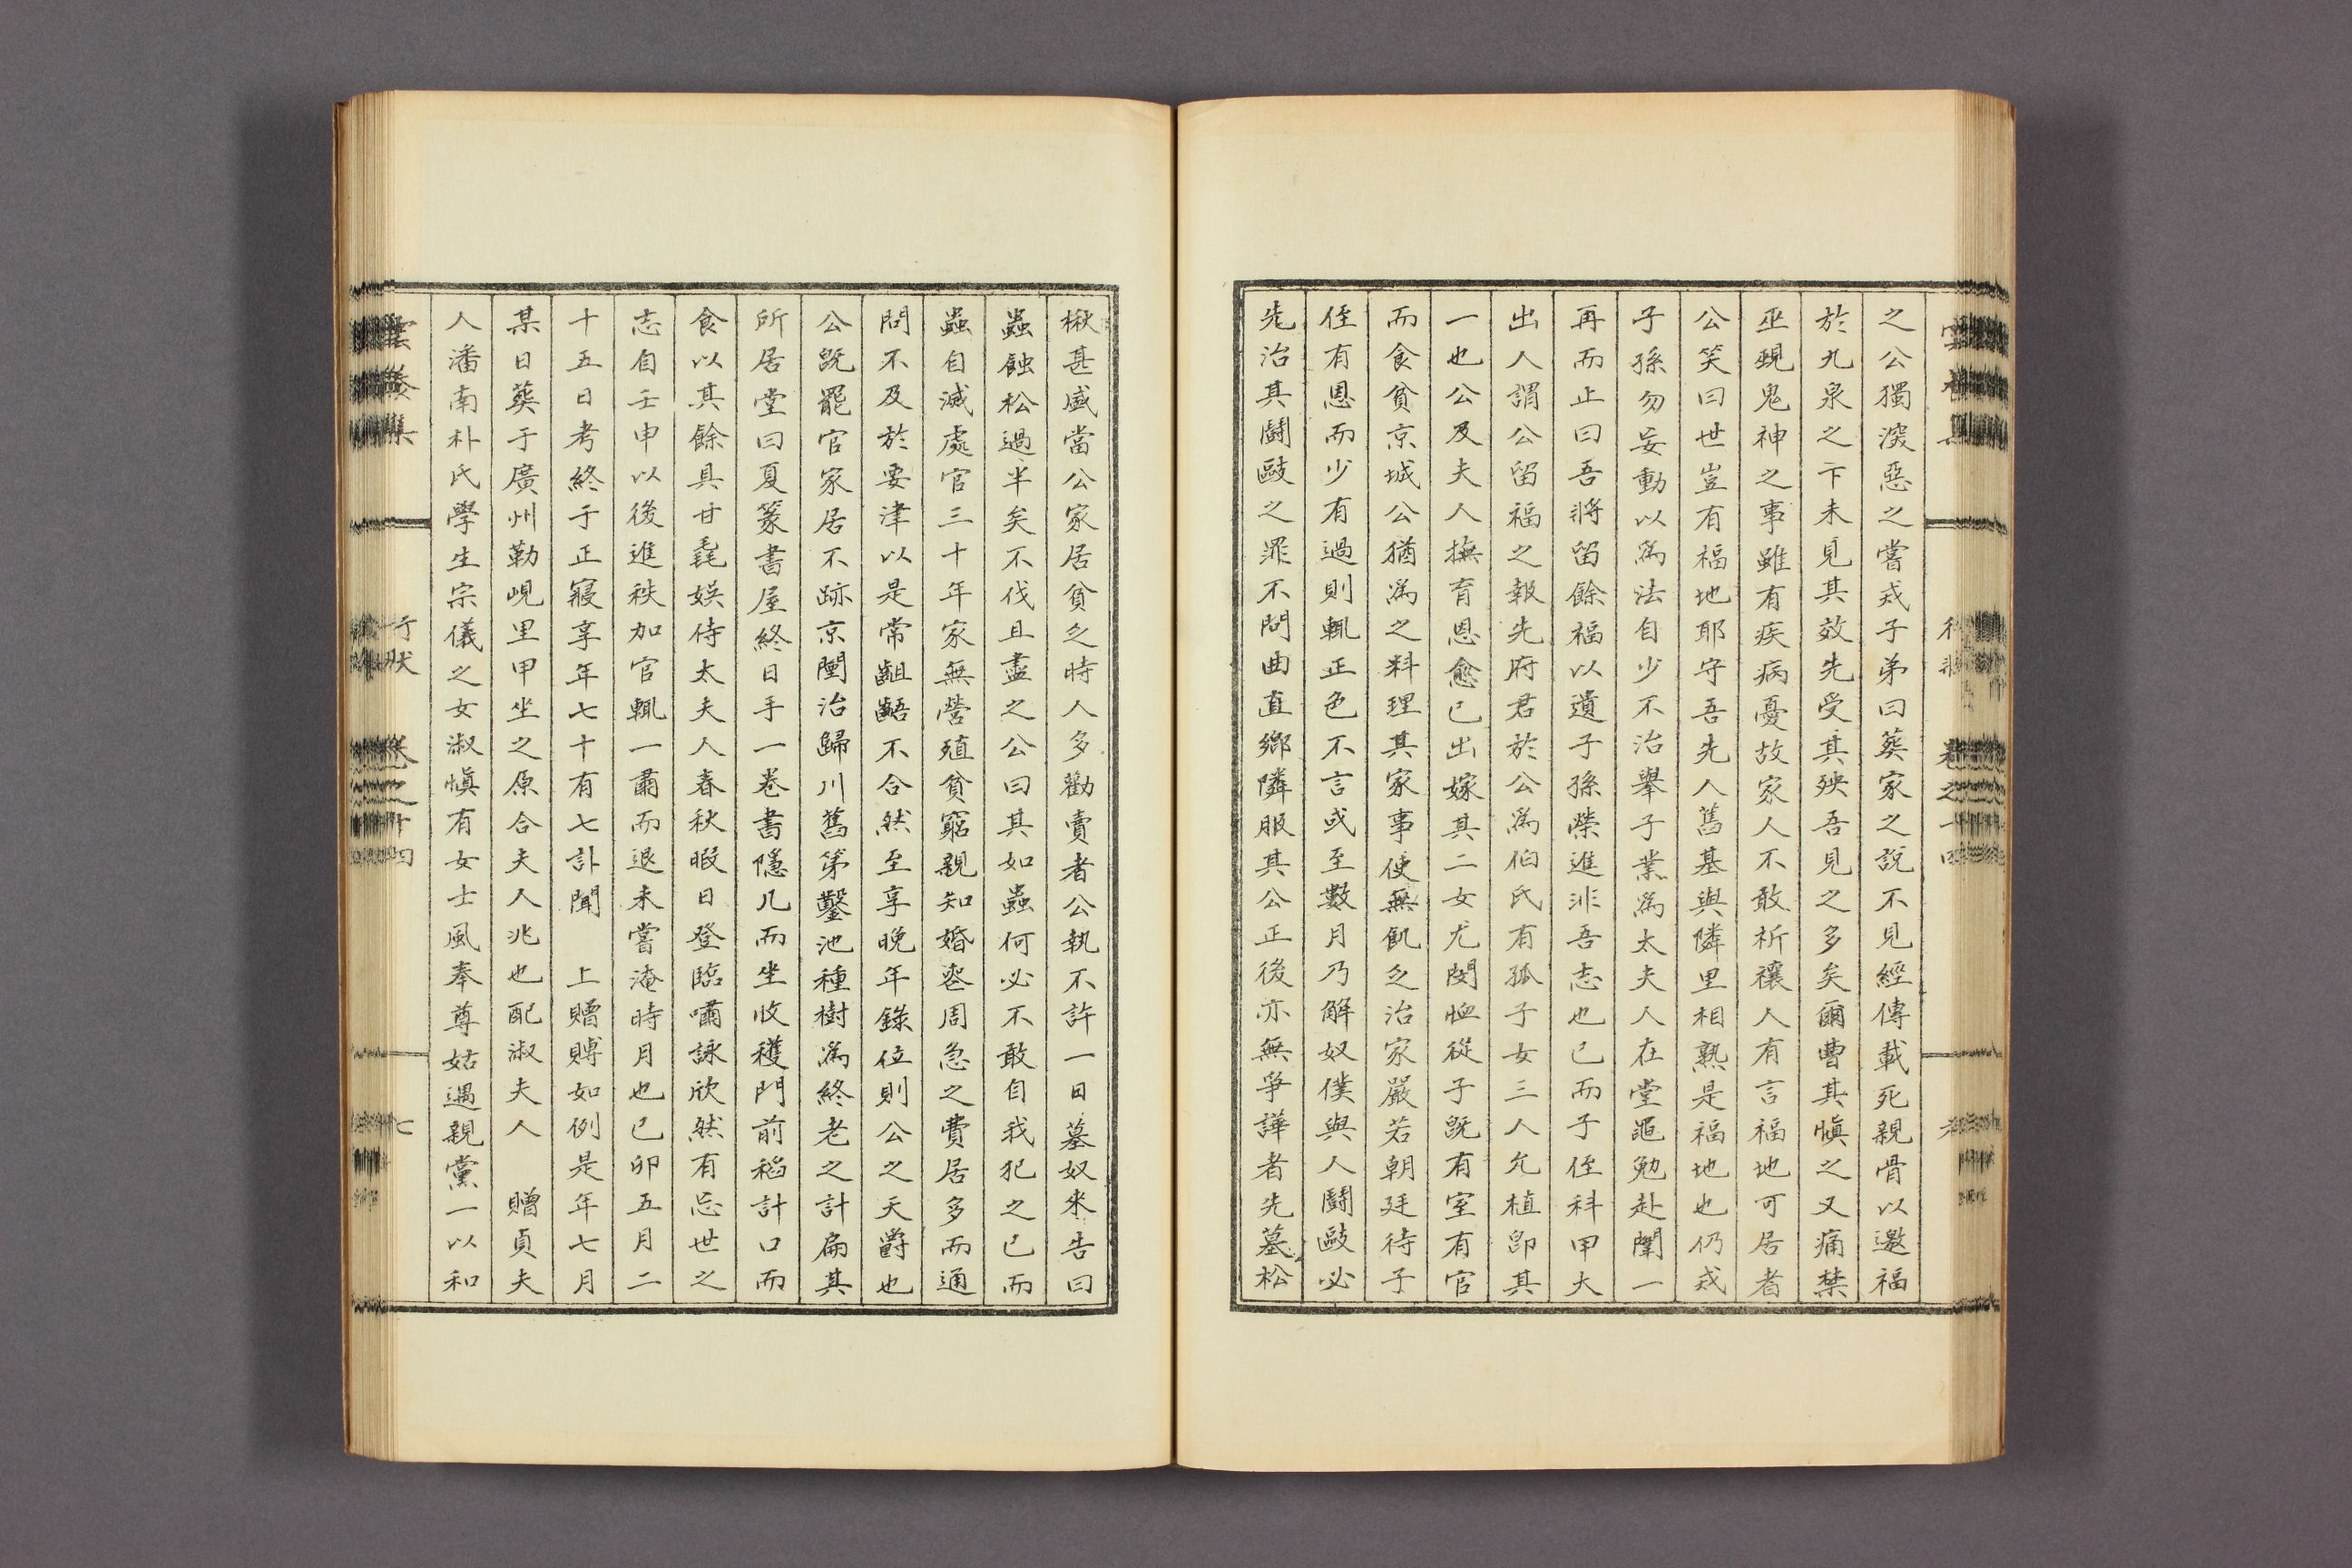 之公獨深惡之嘗戒子弟曰葬家之說不見經傳載死親骨以邀福
於九泉之下未見其效先受其殃吾見之多矣爾曹其愼之又痛禁
巫覡鬼神之事雖有疾病憂故家人不敢祈禳人有言福地可居者
公笑曰世豈有福地耶守吾先人舊基與隣里相熟是福地也仍戒
子孫勿妄動以爲法自少不治擧子業爲太夫人在堂黽勉赴闈一
再而止曰吾將留餘福以遺子孫榮進非吾志也已而子侄科甲大
出人謂公留福之報先府君於公爲伯氏有孤子女三人允植卽其
一也公及夫人撫育恩愈己出嫁其二女尤閔恤從子旣有室有官
而食貧京城公猶爲之料理其家事使無飢乏治家嚴若朝廷待子
侄有恩而少有過則輒正色不言或至數月乃解奴僕與人鬪毆必
先治其鬪毆之罪不問曲直鄕隣服其公正後亦無爭譁者先墓松
楸甚盛當公家居貧乏時人多勸賣者公執不許一日墓奴來告曰
蟲蝕松過半矣不伐且盡之公曰其如蟲何必不敢自我犯之已而
蟲自滅處官三十年家無營殖貧窮親知婚喪周急之費居多而通
問不及於要津以是常齟齬不合然至享晩年祿位則公之天爵也
公旣罷官家居不跡京闉治歸川舊第鑿池種樹爲終老之計扁其
所居堂曰夏篆書屋終日手一卷書隱几而坐收穫門前稻計口而
食以其餘具甘毳娛侍太夫人春秋暇日登臨嘯詠欣然有忘世之
志自壬申以後進秩加官輒一肅而退未嘗淹時月也己卯五月二
十五日考終于正寢享年七十有七訃聞　上贈賻如例是年七月
某日葬于廣州勒峴里甲坐之原合夫人兆也配淑夫人　贈貞夫
人潘南朴氏學生宗儀之女淑愼有女士風奉尊姑遇親黨一以和
雲養集
行狀
卷之十四
七